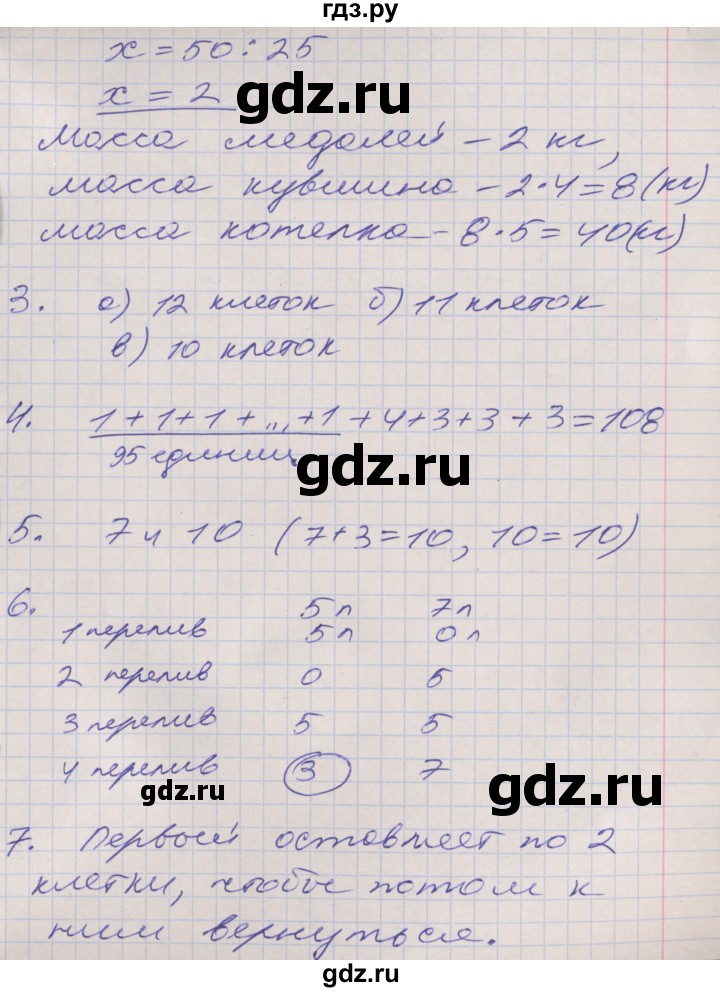 гдз.ру
x = 50 : 25
x = 2
gdz.ru
Масса медалей – 2 кг,
масса кувшина – 2·4=8(кг)
масса котелка – 8·5=40(кг)
3. а) 12 клеток б) 11 клеток
в) 10 клеток
4. 1+1+1+...+1+4+3+3+3=108
95 единиц.
gdz.ru
5. 7 и 10 (7+3=10, 10=10)
6. 5 л 7 л
1 перелив 5 л 0 л
2 перелив 0 5
3 перелив 5 5
4 перелив 3 7
gdz.ru
gdz.ru
7. Первый оставляет по 2
клетки, чтобы потом к
ним вернуться.
gdz.ru